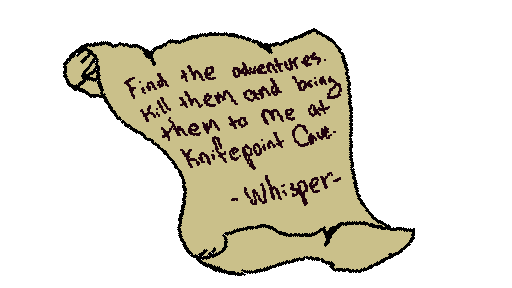 Find the adventures.
Kill them and bring
them to me at
Knifepoint Cave.
-Whisper-